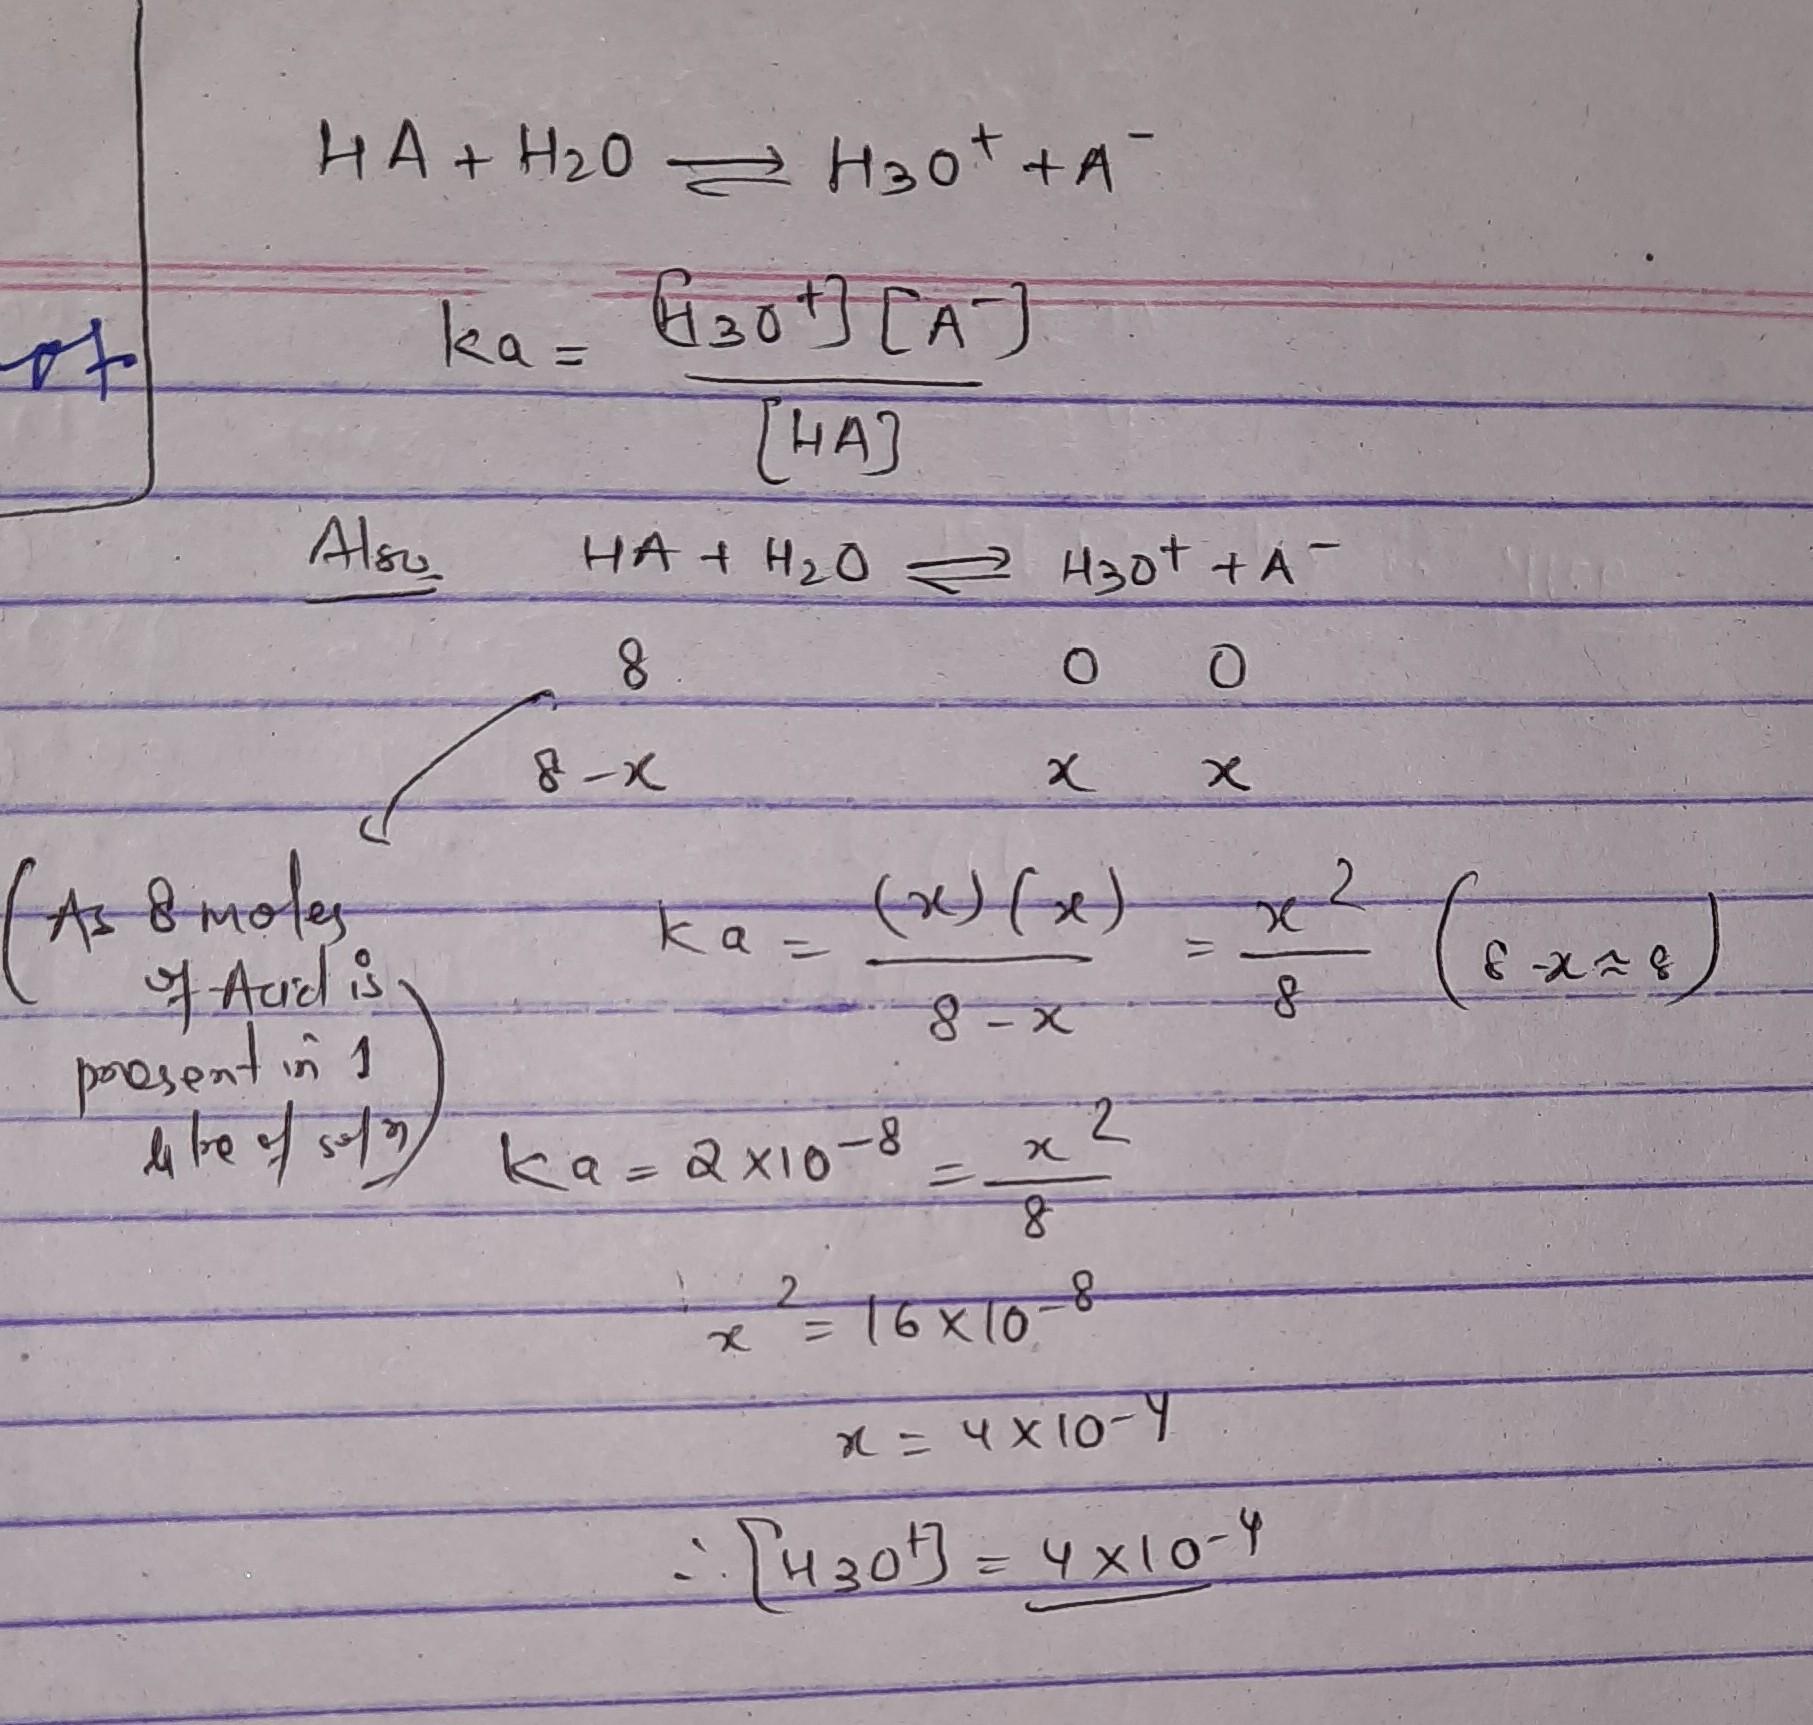 HA + H₂O ⇌ H₃O⁺ + A⁻
of
ka = [H₃O⁺] [A⁻] / [HA]
Also HA + H₂O ⇌ H₃O⁺ + A⁻
8 0 0
8-x x x
(As 8 moles
of Acid is
present in 1
litre of solⁿ)
ka = (x)(x) / 8-x = x² / 8 (8-x ≈ 8)
ka = 2×10⁻⁸ = x² / 8
x² = 16×10⁻⁸
x = 4×10⁻⁴
∴ [H₃O⁺] = 4×10⁻⁴